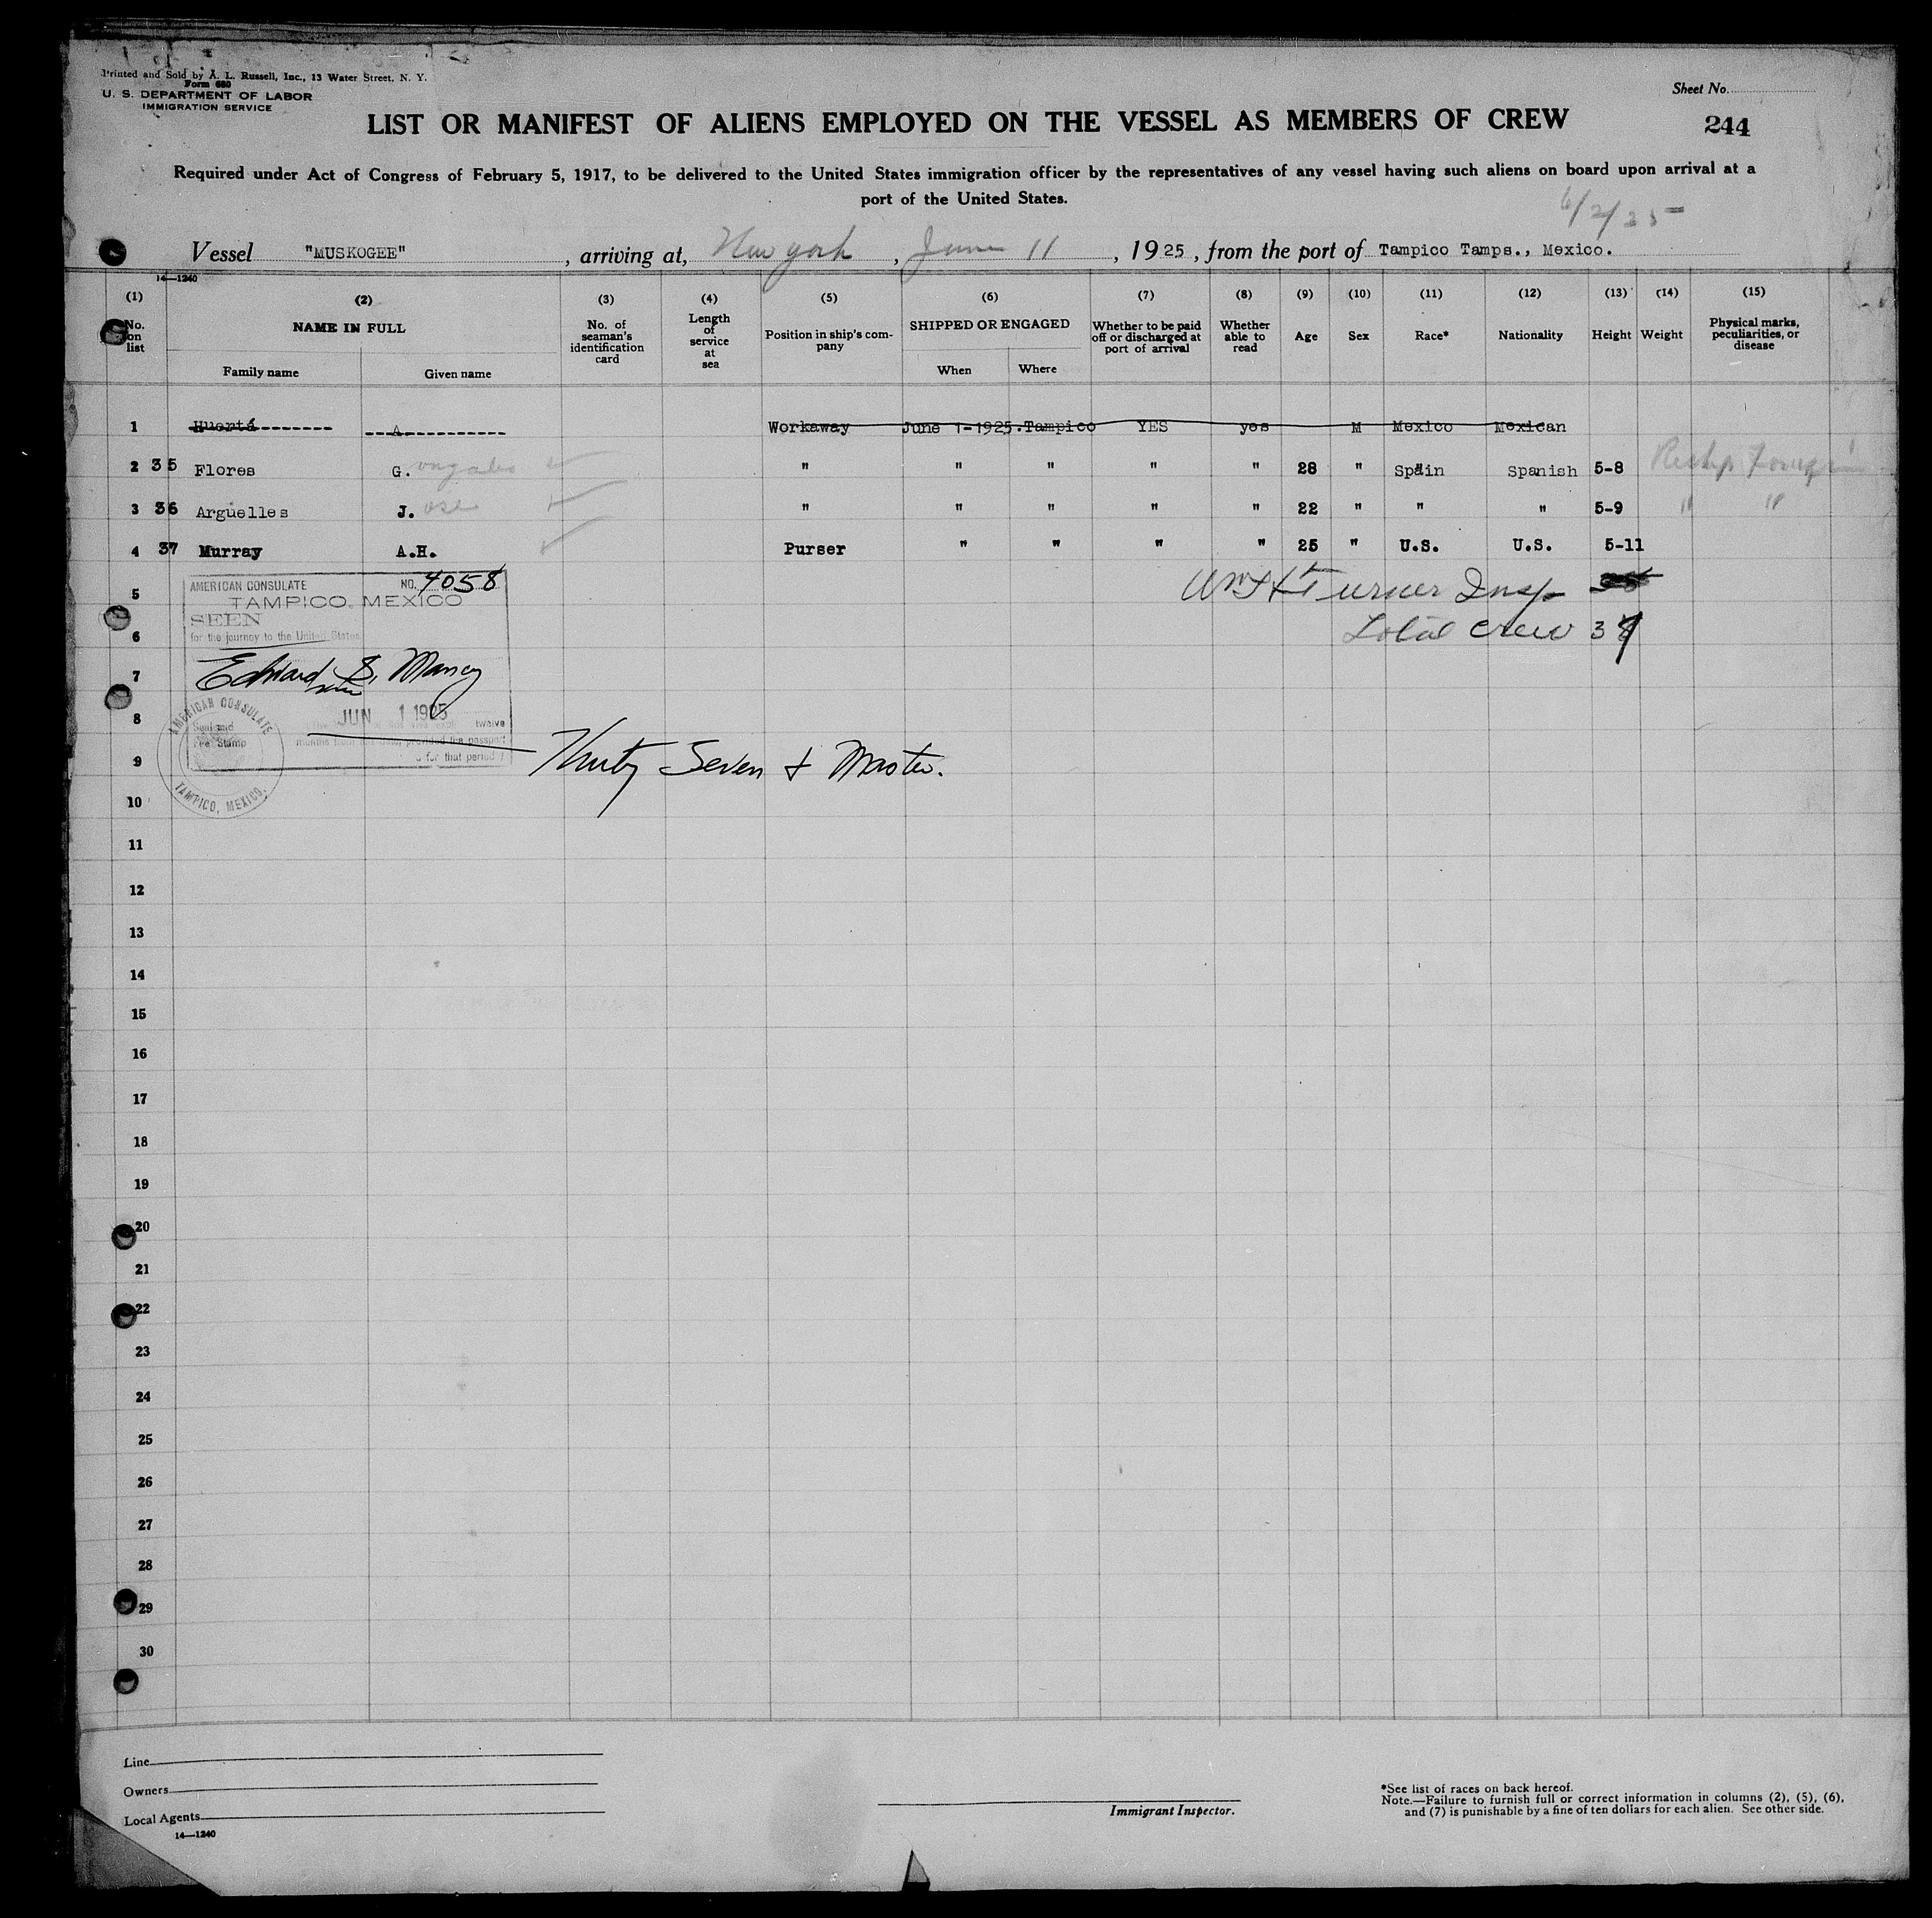 Printed and Sold by A. L. Russell, Inc., 13 Water Street, N. Y.
Form 680
U. S. DEPARTMENT OF LABOR
IMMIGRATION SERVICE
Sheet No.
LIST OR MANIFEST OF ALIENS EMPLOYED ON THE VESSEL AS MEMBERS OF CREW
244
Required under Act of Congress of February 5, 1917, to be delivered to the United States immigration officer by the representatives of any vessel having such aliens on board upon arrival at a
port of the United States.
6/2/25
Vessel "MUSKOGEE", arriving at, New york, June 11, 1925, from the port of Tampico Tamps., Mexico.
14—1240
(1) (2) (3) (4) (5) (6) (7) (8) (9) (10) (11) (12) (13) (14) (15)
No. on list NAME IN FULL Family name Given name No. of seaman's identification card Length of service at sea Position in ship's company SHIPPED OR ENGAGED When Where Whether to be paid off or discharged at port of arrival Whether able to read Age Sex Race* Nationality Height Weight Physical marks, peculiarities, or disease
1 Huerta A. Workaway June 1-1925. Tampico YES yes M Mexico Mexican
2 35 Flores G. " " " " " 28 " Spain Spanish 5-8
3 36 Arguelles J. ose " " " " " 22 " " " 5-9 " "
4 37 Murray A.H. Purser " " " " 25 " U.S. U.S. 5-11
5
AMERICAN CONSULATE NO. 4058
TAMPICO, MEXICO
SEEN
for the journey to the United States
Turner Insp
6
Total crew 38
7
Edward S. Maney
8
JUN 1 1925
twelve
months from this date, provided the passport
for that period
AMERICAN CONSULATE
Seal and
Fee Stamp
TAMPICO, MEXICO.
9
Thirty Seven & Master.
10
11
12
13
14
15
16
17
18
19
20
21
22
23
24
25
26
27
28
29
30
Line
Owners
Local Agents
14—1240
Immigrant Inspector.
*See list of races on back hereof.
Note.—Failure to furnish full or correct information in columns (2), (5), (6),
and (7) is punishable by a fine of ten dollars for each alien. See other side.